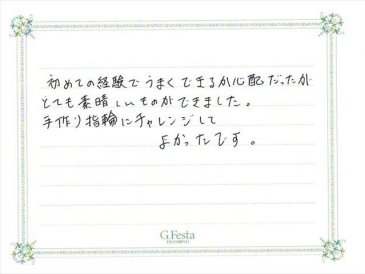 初めての経験でうまくできるか心配だったが
とても素晴しいものができました。
手作り指輪にチャレンジして
よかったです。
G.Festa